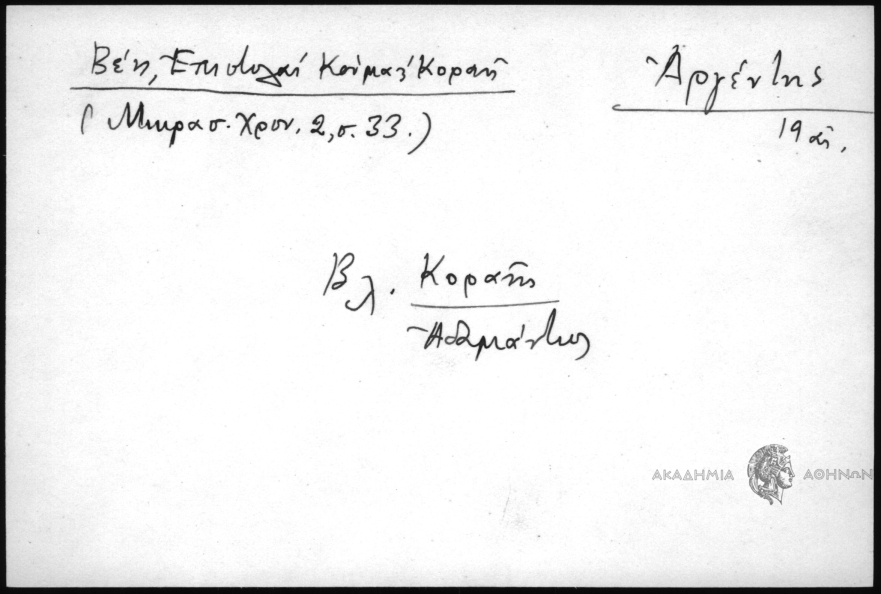 Βέη, Ἐπιστολαί Κούμα & Κοραῆ
(Μικρασ. Χρον. 2, σ. 33.)
Ἀργέντης
19 αἰ.
Βλ. Κοραῆς
Ἀδαμάντιος
ΑΚΑΔΗΜΙΑ ΑΘΗΝΩΝ